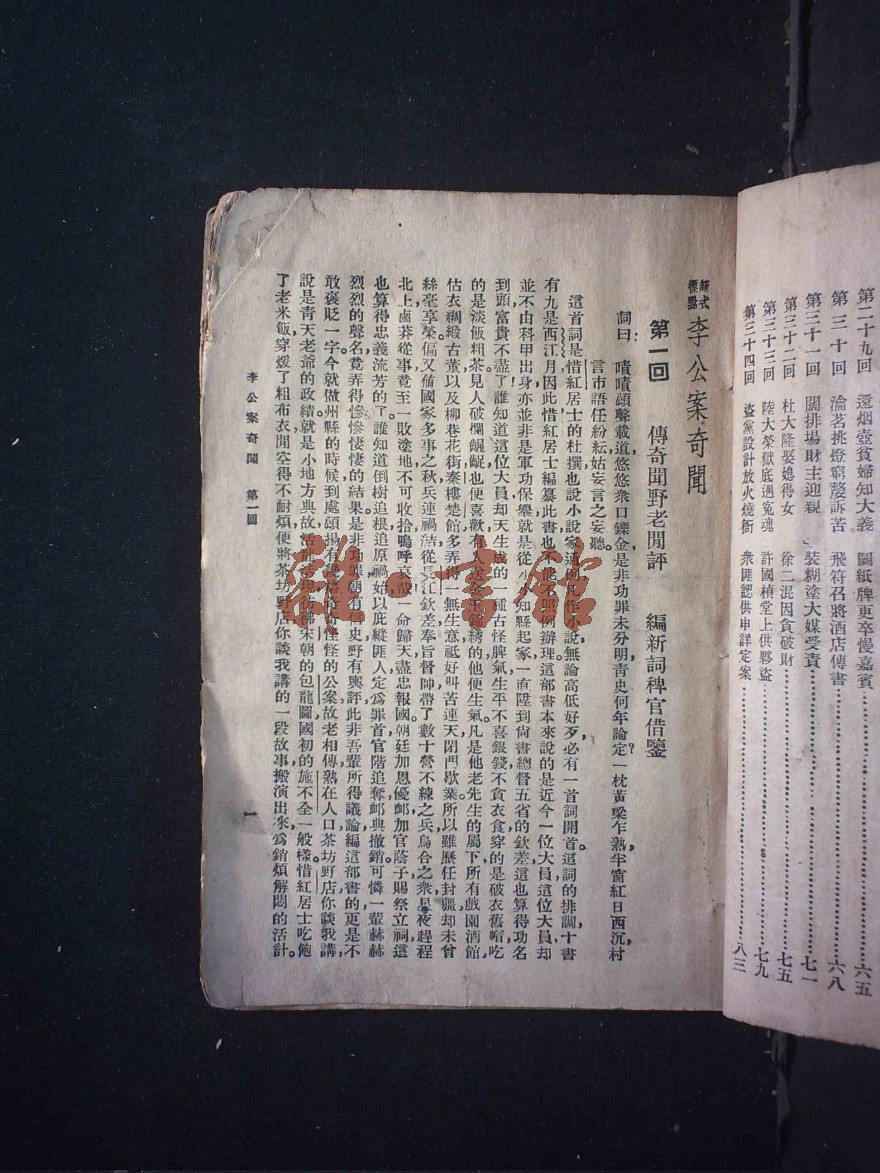 第二十九回 還烟壺貧婦知大義 圖紙牌更卒慢嘉賓……六五
第三十回 淪茗挑燈窮嫠訴苦 飛符召將酒店傳書……六八
第三十一回 闊排場財主迎親 裝糊塗大媒受責……七一
第三十二回 杜大隆娶媳得女 徐二混因貪破財……七五
第三十三回 陸大榮獄底遇寃魂 許國楨堂上供夥盜……七九
第三十四回 盜黨設計放火燒衙 衆匪認供申詳定案……八三
新式標點 李公案奇聞
第一回 傳奇聞野老閒評 編新詞稗官借鑒
詞曰:嘖嘖頌聲載道,悠悠衆口鑠金,是非功罪未分明,青史何年論定?一枕黃粱乍熟,半窗紅日西沉,村
言市語任紛紜,姑妄言之妄聽。
這首詞是惜紅居士的杜撰,也說小說家這例,凡作小說,無論高低好歹,必有一首詞開首。這詞的排調,十書
有九是西江月,因此惜紅居士編纂此書,也不能不照例辦理。這部書本來說的是近今一位大員,這位大員却
並不由科甲出身,亦並非是軍功保舉,就是從小小知縣起家,一直陞到尙書總督,五省的欽差,這也算得功名
到頭,富貴不盡了!誰知道這位大員,却天生成的一種古怪脾氣,生平不喜銀錢,不貪衣食,穿的是破衣舊帽,吃
的是淡飯粗茶,見人破爛齷齪,也便喜歡,有人
綉的,他便生氣。凡是他老先生的屬下,所有戲園酒館,
估衣綢緞古董,以及柳巷花街,秦樓楚館,多弄得一無生意,祗好叫苦連天,閉門歇業。所以雖歷任封疆,却未曾
絲毫享榮,偏又値國家多事之秋,兵連禍結,從長江欽差奉旨督帥,帶了數十營不練之兵,烏合之衆,星夜趕程
北上,鹵莽從事,竟至一敗塗地,不可收拾。嗚呼哀哉,一命歸天,盡忠報國。朝廷加恩優卹,加官蔭子,賜祭立祠,這
也算得忠義流芳的了。誰知道倒樹追根,追原禍始,以庇縱匪人,定爲罪首,官階追奪,卹典撤銷。可憐一輩赫赫
烈烈的聲名,竟弄得慘慘悽悽的結果。是非功罪,朝有靑史,野有輿評,此非吾輩所得議論,編這部書的更是不
敢褒貶一字。今就做州縣的時候,到處頌揚,有
奇怪怪的公案,故老相傳,熟在人口,茶坊野店,你談我講,
說是靑天老爺的政績,就是小地方典故,活
佛宋朝的包龍圖,國初的施不全一般樣。惜紅居士吃飽
了老米飯,穿煖了粗布衣,閒空得不耐煩,便將茶坊野店你談我講的一段故事,搬演出來,爲銷煩解悶的活計。
李公案奇聞 第一回 一
雜·書館